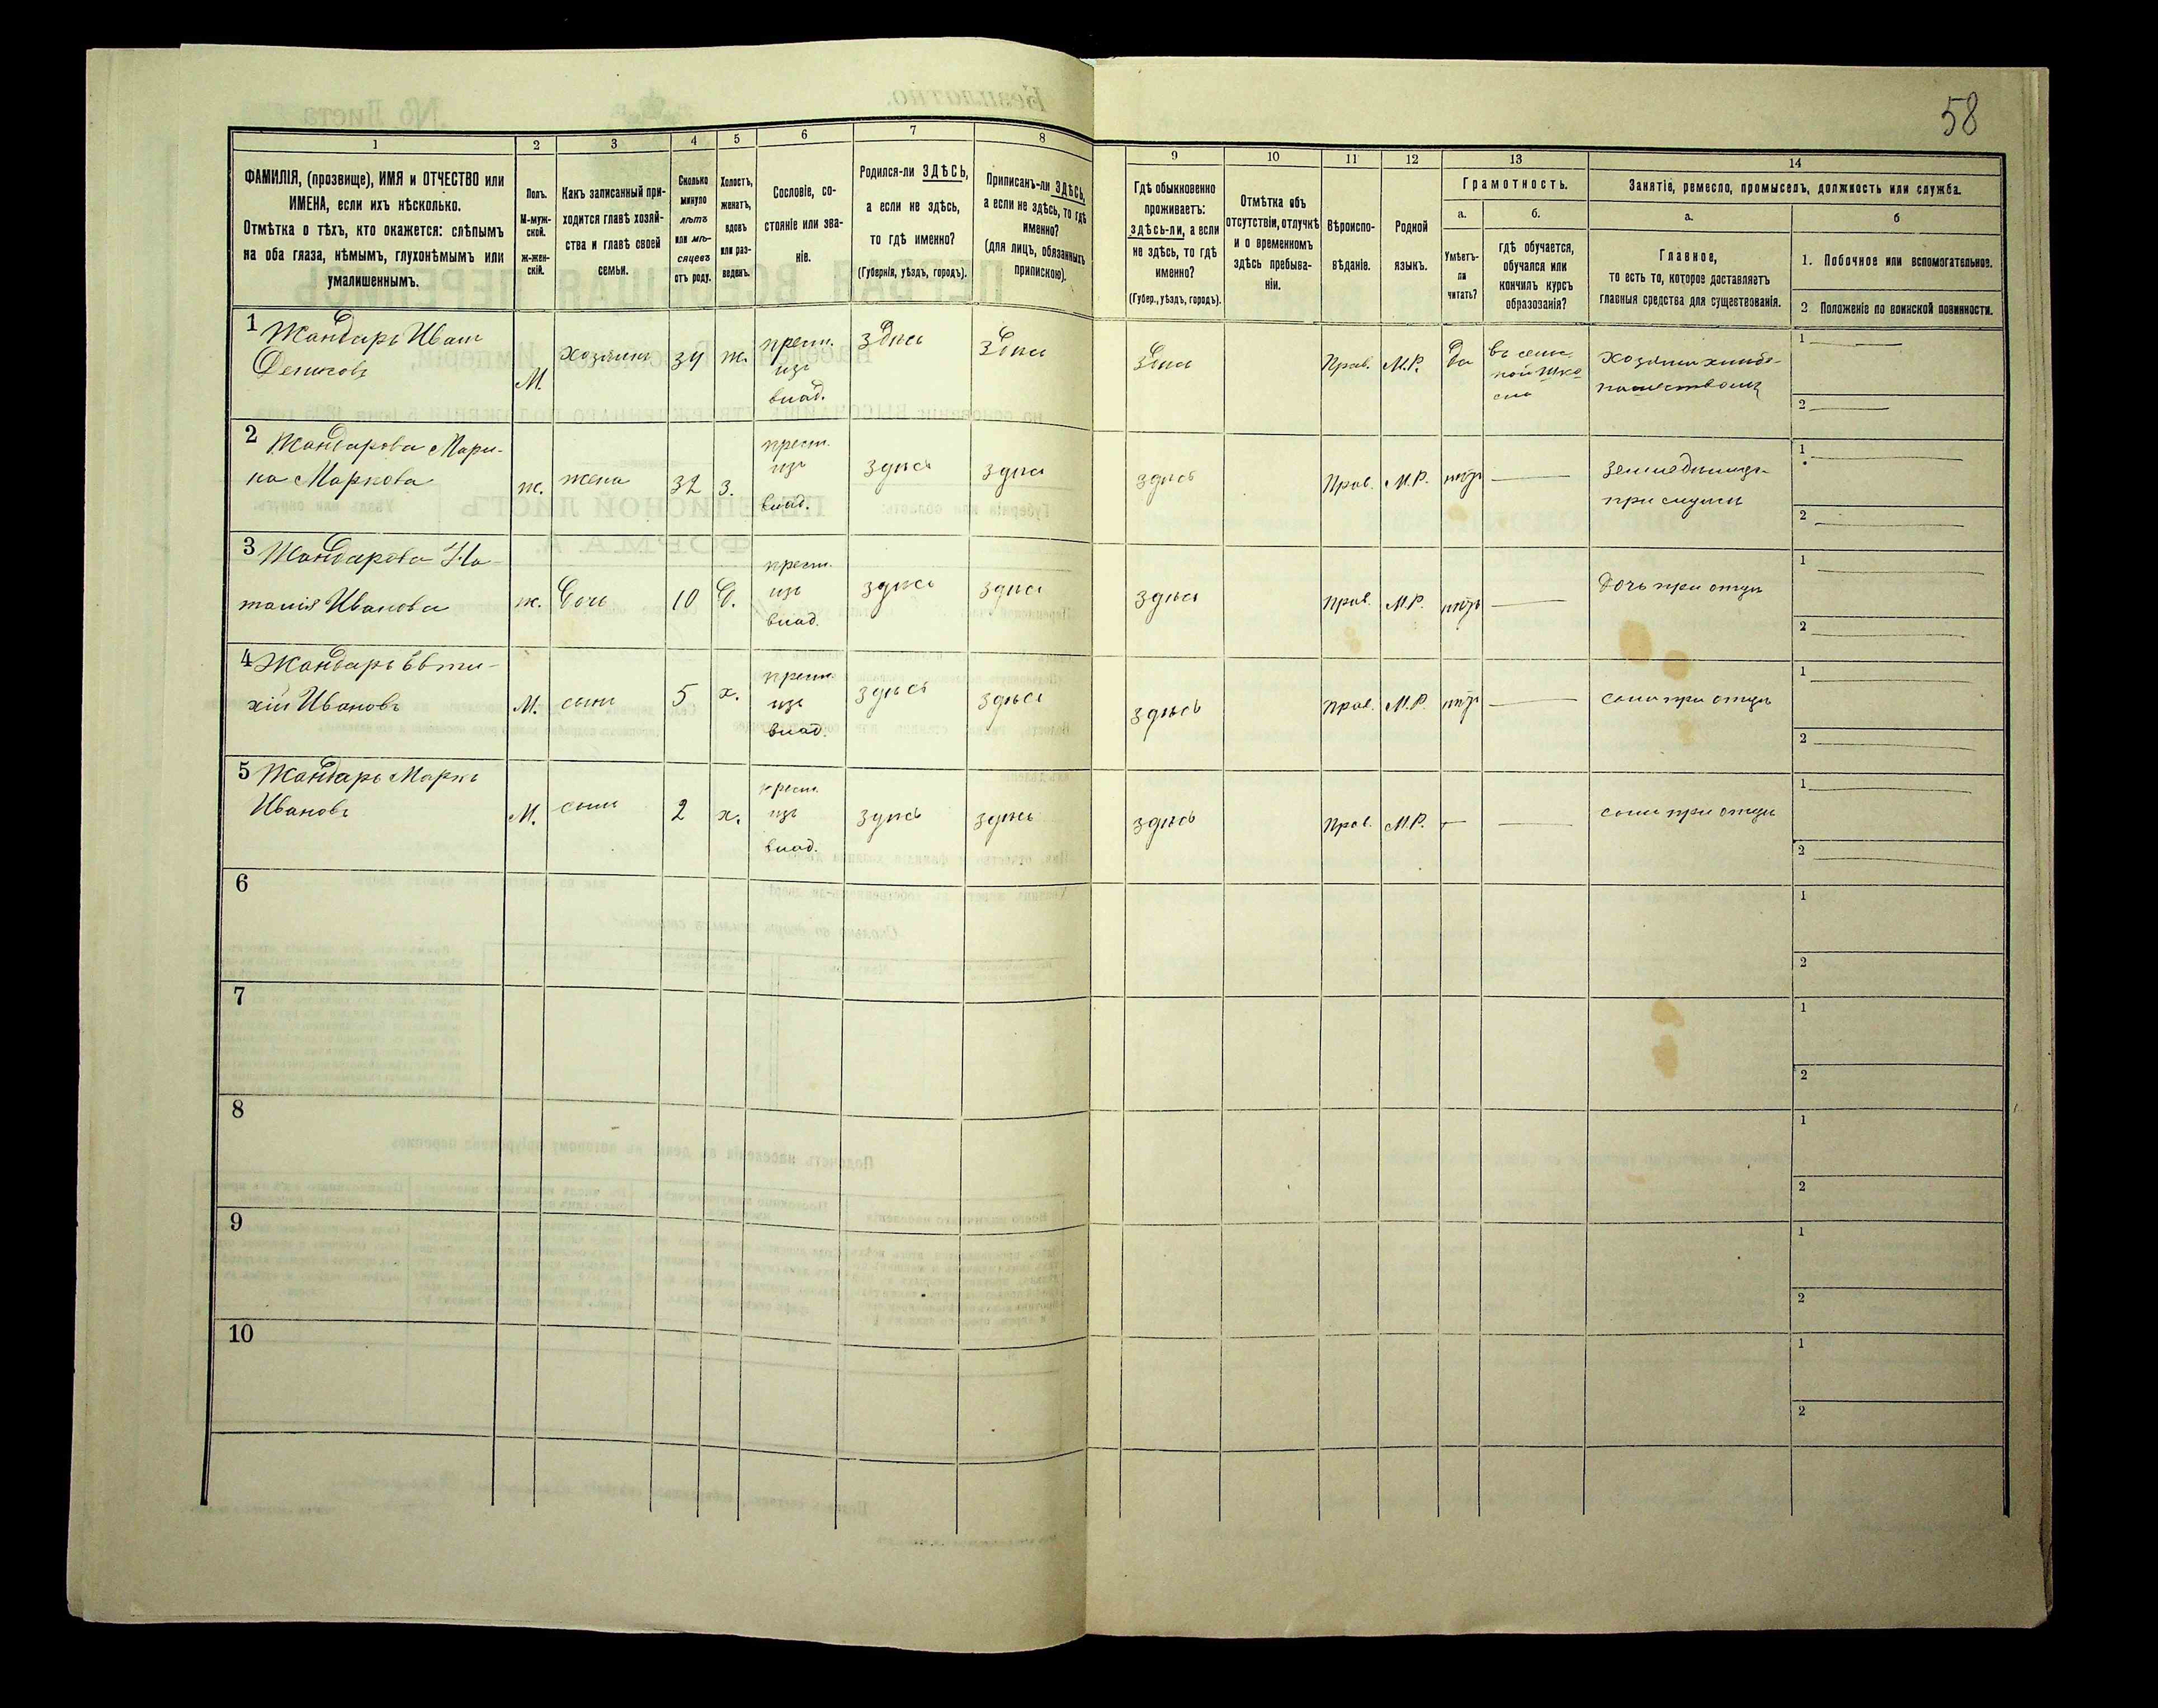 58
1
2
3
4
5
6
7
8
9
10
11
12
13
14
ФАМИЛІЯ, (прозвище), ИМЯ и ОТЧЕСТВО или
ИМЕНА, если ихъ нѣсколько.
Отмѣтка о тѣхъ, кто окажется: слѣпымъ
на оба глаза, нѣмымъ, глухонѣмымъ или
умалишеннымъ.
Полъ.
М-муж-
ской.
Ж-жен-
скій.
Какъ записанный при-
ходится главѣ хозяй-
ства и главѣ своей
семьи.
Сколько
минуло
лѣтъ
или мѣ-
сяцевъ
отъ роду.
Холостъ,
женатъ,
вдовъ
или раз-
веденъ.
Сословіе, со-
стояніе или зва-
ніе.
Родился-ли ЗДѢСЬ,
а если не здѣсь,
то гдѣ именно?
(Губернія, уѣздъ, городъ).
Приписанъ-ли ЗДѢСЬ,
а если не здѣсь, то гдѣ
именно?
(для лицъ, обязанныхъ
припискою).
Гдѣ обыкновенно
проживаетъ:
здѣсь-ли, а если
не здѣсь, то гдѣ
именно?
(Губер., уѣздъ, городъ).
Отмѣтка объ
отсутствіи, отлучкѣ
и о временномъ
здѣсь пребыва-
ніи.
Вѣроиспо-
вѣданіе.
Родной
языкъ.
Грамотность.
а.
Умѣетъ-
ли
читать?
б.
гдѣ обучается,
обучался или
кончилъ курсъ
образованія?
Занятіе, ремесло, промыселъ, должность или служба.
а.
Главное,
то есть то, которое доставляетъ
главныя средства для существованія.
б
1. Побочное или вспомогательное.
2 Положеніе по воинской повинности.
1 Жандаръ Иванъ
М.
хозяинъ
34
ж.
крест.
изъ
влад.
здѣсь
здѣсь
здѣсь
Прав.
М.Р.
да
1
2
2 Жандарова Мари-
на Маркова
ж.
жена
32
з.
крест.
изъ
влад.
здѣсь
здѣсь
здѣсь
Прав.
М.Р.
нѣтъ
при мужѣ
1
2
3 Жандарова На-
талія Иванова
ж.
дочь
10
д.
крест.
изъ
влад.
здѣсь
здѣсь
здѣсь
Прав.
М.Р.
нѣтъ
дочь при отцѣ
1
2
4 Жандаръ Евти-
хій Ивановъ
М.
сынъ
5
х.
крест.
изъ
влад.
здѣсь
здѣсь
здѣсь
Прав.
М.Р.
нѣтъ
сынъ при отцѣ
1
2
5 Жандаръ Маркъ
Ивановъ
М.
сынъ
2
х.
крест.
изъ
влад.
здѣсь
здѣсь
здѣсь
Прав.
М.Р.
сынъ при отцѣ
1
2
6
1
2
7
1
2
8
1
2
9
1
2
10
1
2